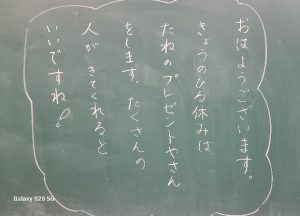 おはようございます。
きょうのひる休みは、
たねのプレゼントやさん
をします。たくさんの
人がきてくれると
いいですね!
Galaxy S20 5G